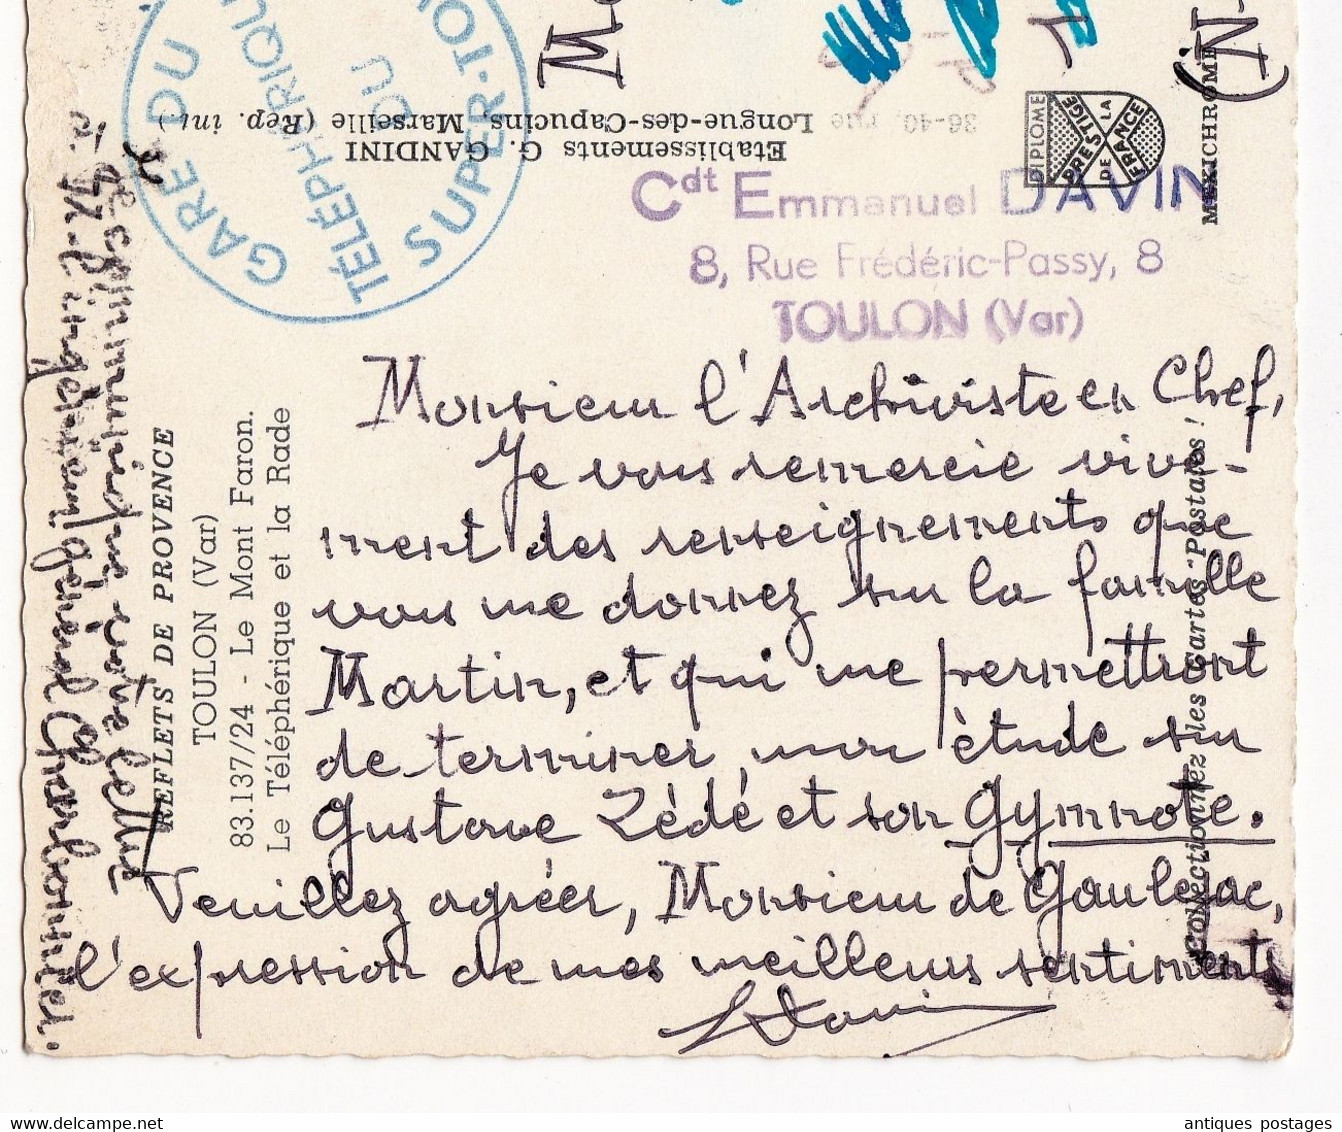 GARE DU
TÉLÉPHÉRIQUE
DU
SUPER-TOU
Etablissements G. GANDINI
36-40, rue Longue-des-Capucins, Marseille (Rep. int.)
DIPLOME
PRESTIGE
DE LA
FRANCE
MEXICHROME
Cdt Emmanuel DAVIN
8, Rue Frédéric-Passy, 8
TOULON (Var)
REFLETS DE PROVENCE
TOULON (Var)
83.137/24 - Le Mont Faron.
Le Téléphérique et la Rade
Collectionnez les Cartes Postales !
Monsieur l'Archiviste en Chef,
Je vous remercie vive-
ment des renseignements que
vous me donnez sur la famille
Martin, et qui me permettront
de terminer mon étude sur
Gustave Zédé et son Gymnote.
Veuillez agréer, Monsieur de Gaulejac,
l'expression de mes meilleurs sentiments
Davin
J'ai communiqué votre lettre
à M. l'ingénieur général Charbonnier.
antiques postages